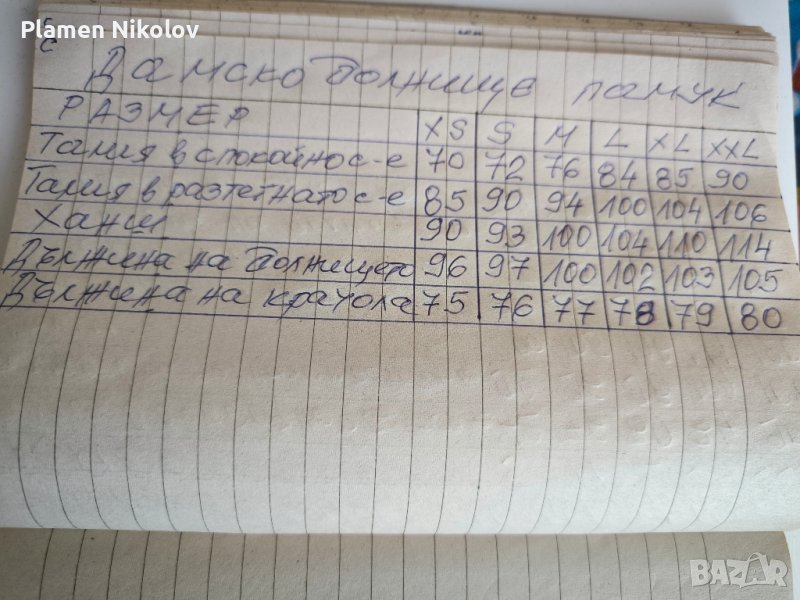 Plamen Nikolov
Дамско долнище памук
РАЗМЕР XS S M L XL XXL
Талия в спокойно с-е 70 72 76 84 85 90
Талия в разтегнато с-е 85 90 94 100 104 106
Ханш 90 93 100 104 110 114
Дължина на долнището 96 97 100 102 103 105
Дължина на крачола 75 76 77 78 79 80
BAZAR